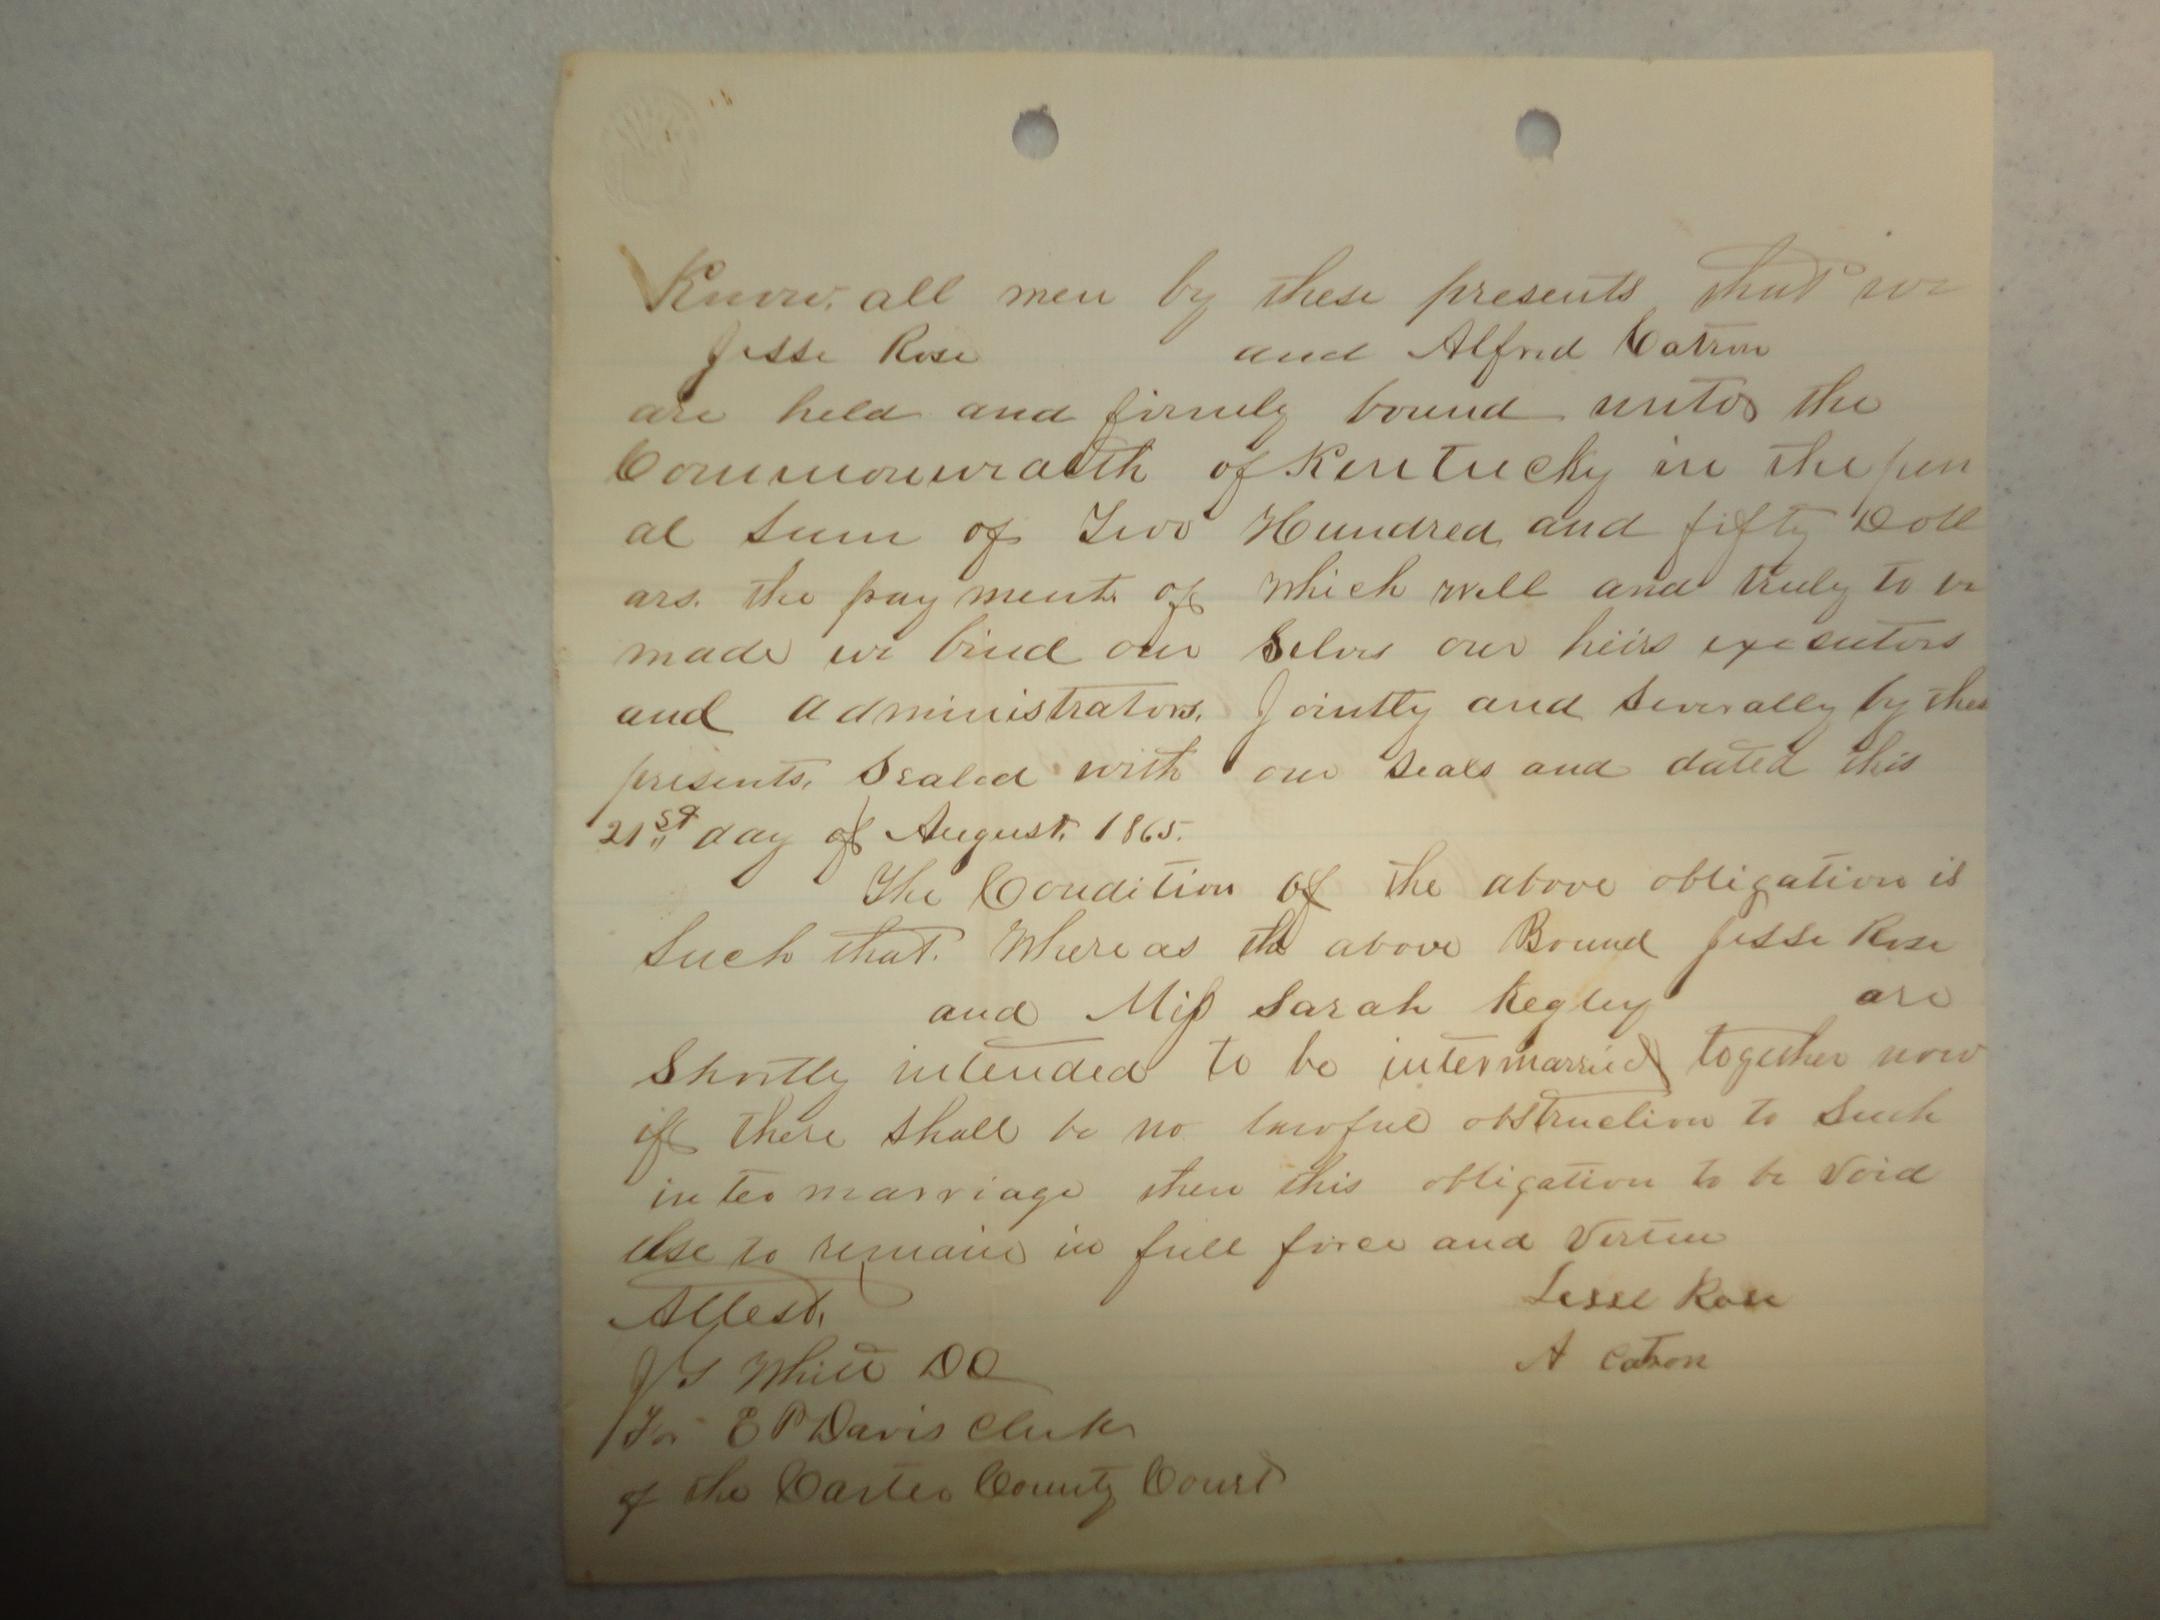 Know all men by these presents that we
Jesse Rose and Alfred Catron
are held and firmly bound unto the
Commonwealth of Kentucky in the pen
al sum of Two Hundred and fifty Doll
ars. the payment of which well and truly to be
made we bind our Selves our heirs executors
and administrators. Jointly and Severally by these
presents. Sealed with our Seals and dated this
21st day of August. 1865.
The Condition of the above obligation is
Such that. Whereas the above Bound Jesse Rose
and Miss Sarah Kegley are
Shortly intended to be intermarried together now
if there shall be no lawful obstruction to Such
intermarriage then this obligation to be Void
else to remain in full force and Vertue
Attest. Jesse Rose
J S Whitt DC A Catron
For E P Davis Clerk
of the Carter County Court